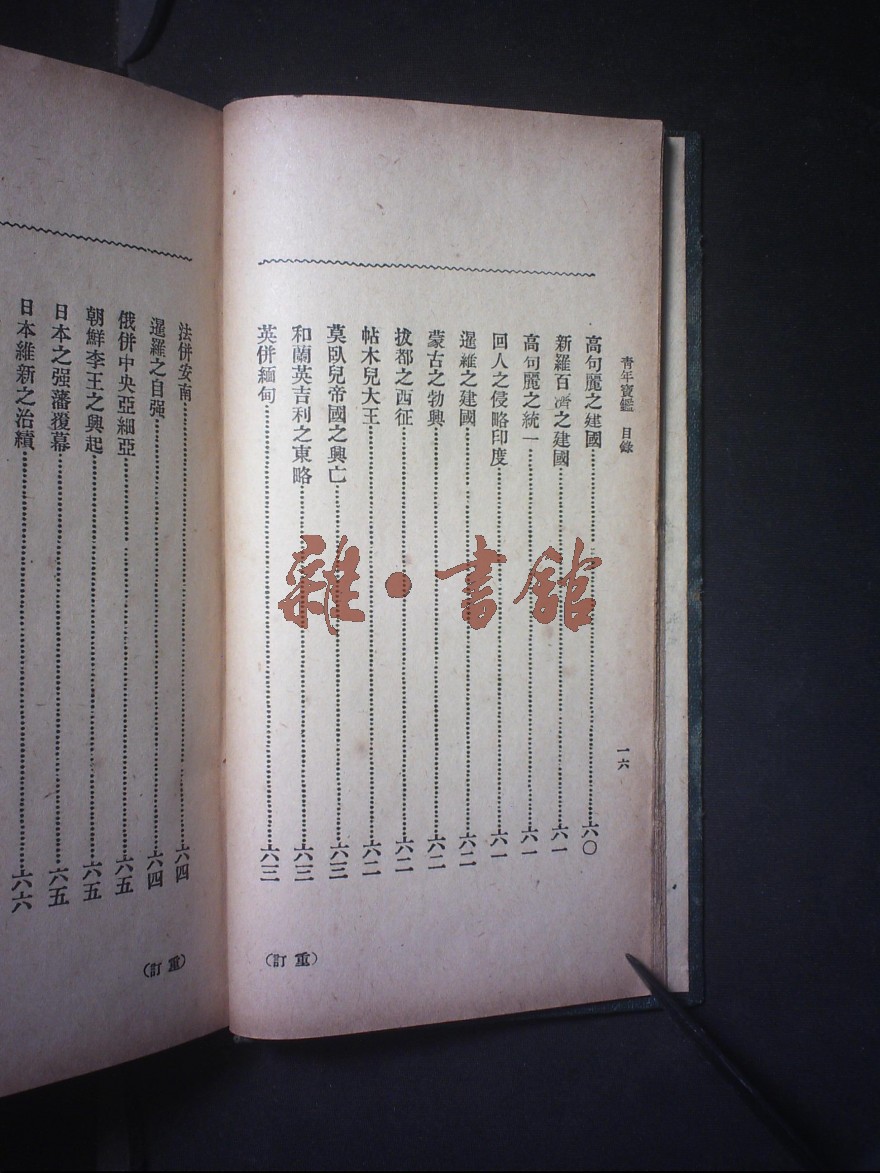 青年寶鑑 目錄
一六
高句麗之建國 六〇
新羅百濟之建國 六一
高句麗之統一 六一
回人之侵略印度 六一
暹羅之建國 六二
蒙古之勃興 六二
拔都之西征 六二
帖木兒大王 六二
莫臥兒帝國之興亡 六三
和蘭英吉利之東略 六三
英併緬甸 六三
(重訂)
法併安南 六四
暹羅之自强 六四
俄併中央亞細亞 六五
朝鮮李王之興起 六五
日本之强藩覆幕 六五
日本維新之治績 六六
(重訂)
雜·書館